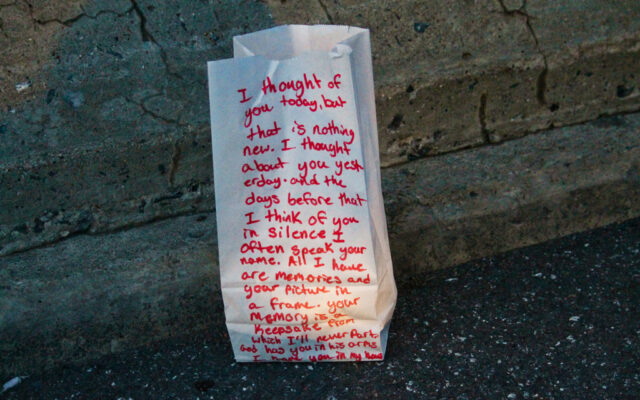 I thought of
you today, but
that is nothing
new. I thought
about you yest
erday. and the
days before that
I think of you
in silence I
often speak your
name. All I have
are memories and
your picture in
a frame. your
memory is a
keepsake from
which I'll never part.
God has you in his arms
I have you in my